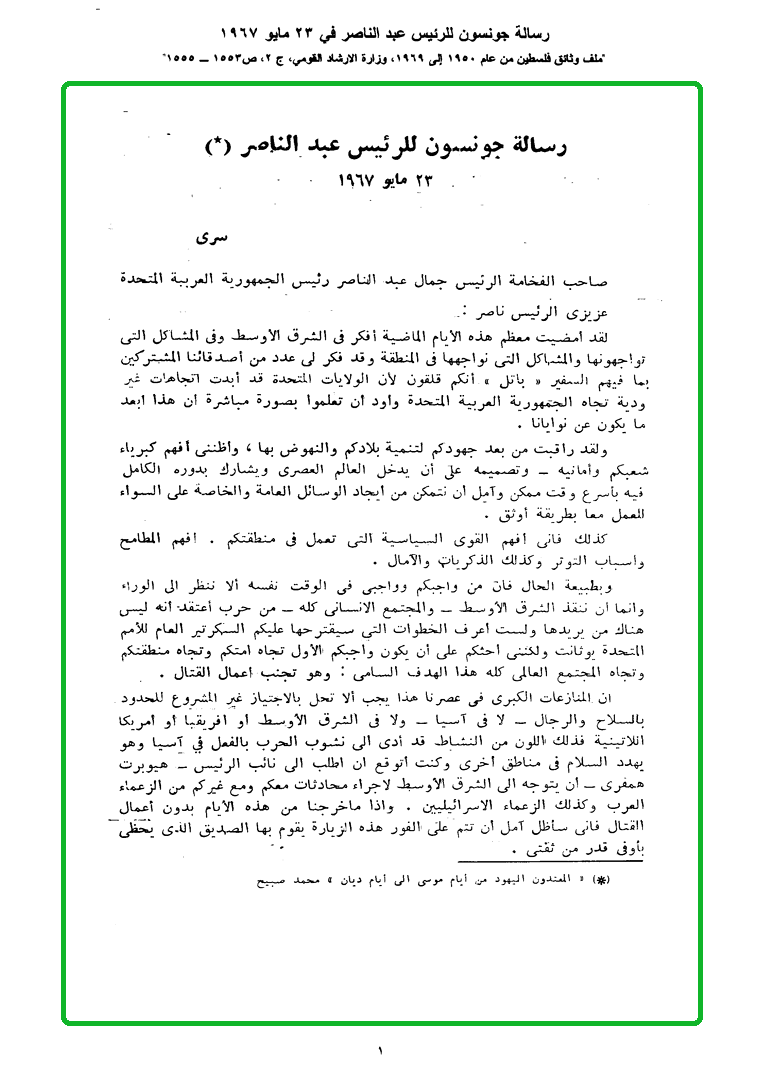 رسالة جونسون للرئيس عبد الناصر في ٢٣ مايو ١٩٦٧
"ملف وثائق فلسطين من عام ١٩٥٠ إلى ١٩٦٩، وزارة الارشاد القومي، ج ٢، ص١٥٥٣ – ١٥٥٥"
رسالة جونسون للرئيس عبد الناصر (*)
٢٣ مايو ١٩٦٧
سرى
صاحب الفخامة الرئيس جمال عبد الناصر رئيس الجمهورية العربية المتحدة
عزيزى الرئيس ناصر :
لقد أمضيت معظم هذه الأيام الماضية أفكر فى الشرق الأوسط وفى المشاكل التى
تواجهونها والمشاكل التى نواجهها فى المنطقة وقد فكر لى عدد من أصدقائنا المشتركين
بما فيهم السفير « باتل » أنكم قلقون لأن الولايات المتحدة قد أبدت اتجاهات غير
ودية تجاه الجمهورية العربية المتحدة وأود أن تعلموا بصورة مباشرة ان هذا ابعد
ما يكون عن نوايانا .
ولقد راقبت من بعد جهودكم لتنمية بلادكم والنهوض بها ، وأظننى أفهم كبرياء
شعبكم وأمانيه – وتصميمه على أن يدخل العالم العصرى ويشارك بدوره الكامل
فيه بأسرع وقت ممكن وآمل أن نتمكن من ايجاد الوسائل العامة والخاصة على السواء
للعمل معا بطريقة أوثق .
كذلك فانى أفهم القوى السياسية التى تعمل فى منطقتكم . افهم المطامح
وأسباب التوتر وكذلك الذكريات والآمال .
وبطبيعة الحال فان من واجبكم وواجبى فى الوقت نفسه ألا ننظر الى الوراء
وانما ان ننقذ الشرق الأوسط – والمجتمع الانسانى كله – من حرب أعتقد أنه ليس
هناك من يريدها ولست أعرف الخطوات التى سيقترحها عليكم السكرتير العام للأمم
المتحدة يوثانت ولكننى أحثكم على أن يكون واجبكم الأول تجاه امتكم وتجاه منطقتكم
وتجاه المجتمع العالمى كله هذا الهدف السامى : وهو تجنب اعمال القتال .
ان المنازعات الكبرى فى عصرنا هذا يجب ألا تحل بالاجتياز غير المشروع للحدود
بالسلاح والرجال – لا فى آسيا – ولا فى الشرق الأوسط أو افريقيا أو امريكا
اللاتينية فذلك اللون من النشاط قد أدى الى نشوب الحرب بالفعل في آسيا وهو
يهدد السلام فى مناطق أخرى وكنت أتوقع ان اطلب الى نائب الرئيس – هيوبرت
همفرى – أن يتوجه الى الشرق الأوسط لاجراء محادثات معكم ومع غيركم من الزعماء
العرب وكذلك الزعماء الاسرائيليين . واذا ماخرجنا من هذه الأيام بدون أعمال
القتال فانى سأظل آمل أن تتم على الفور هذه الزيارة يقوم بها الصديق الذى يحظى
بأوفى قدر من ثقتى .
(*) « المعتدون اليهود من أيام موسى الى أيام ديان » محمد صبيح
١